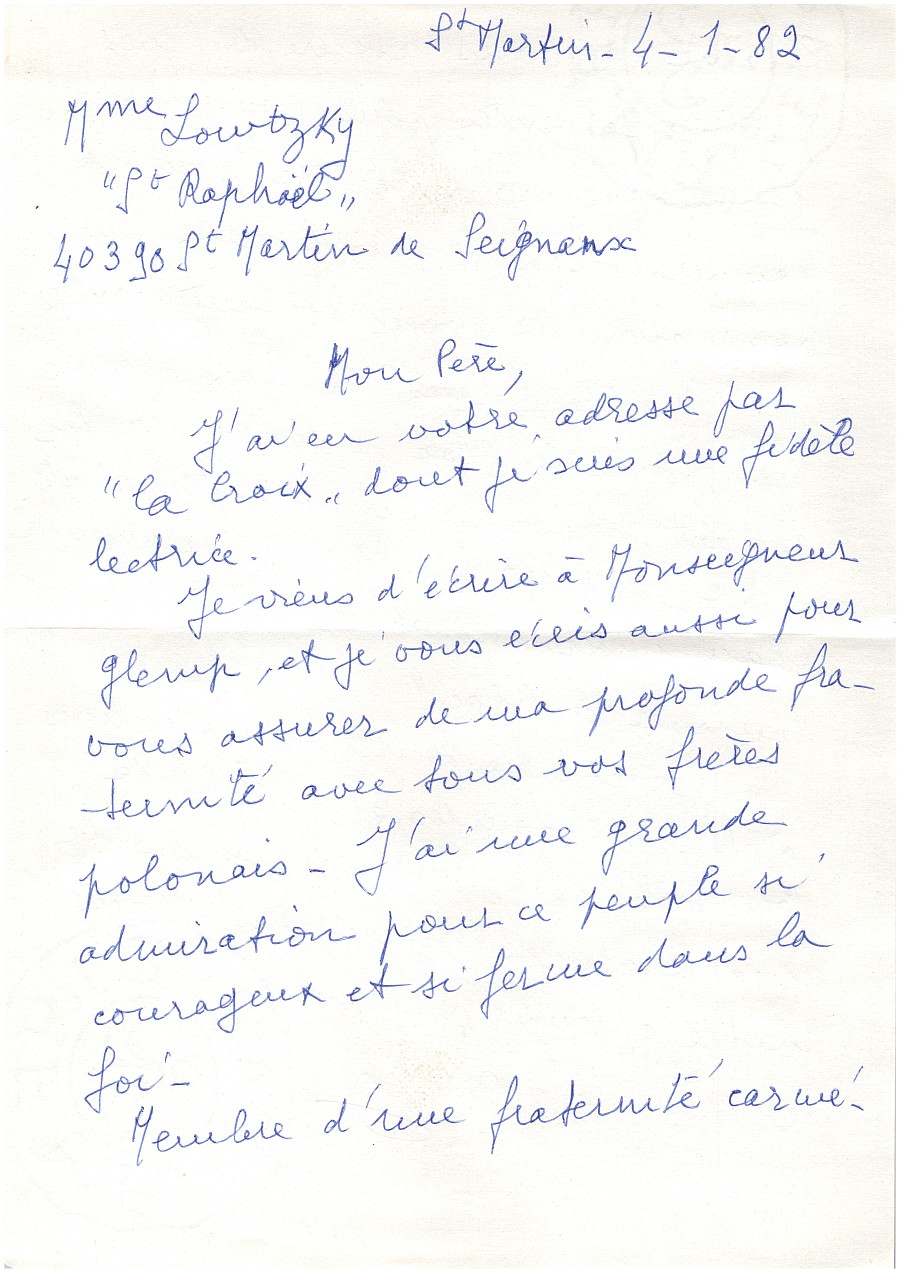 St Martin - 4 - 1 - 82
Mme Lowtzky
"St Raphaël"
40390 St Martin de Seignanx
Mon Père,
J'ai eu votre adresse par
"la Croix" dont je suis une fidèle
lectrice.
Je viens d'écrire à Monseigneur
Glemp, et je vous écris aussi pour
vous assurer de ma profonde fra-
ternité avec tous vos frères
polonais - J'ai une grande
admiration pour ce peuple si
courageux et si ferme dans la
foi -
Membre d'une fraternité carmé-